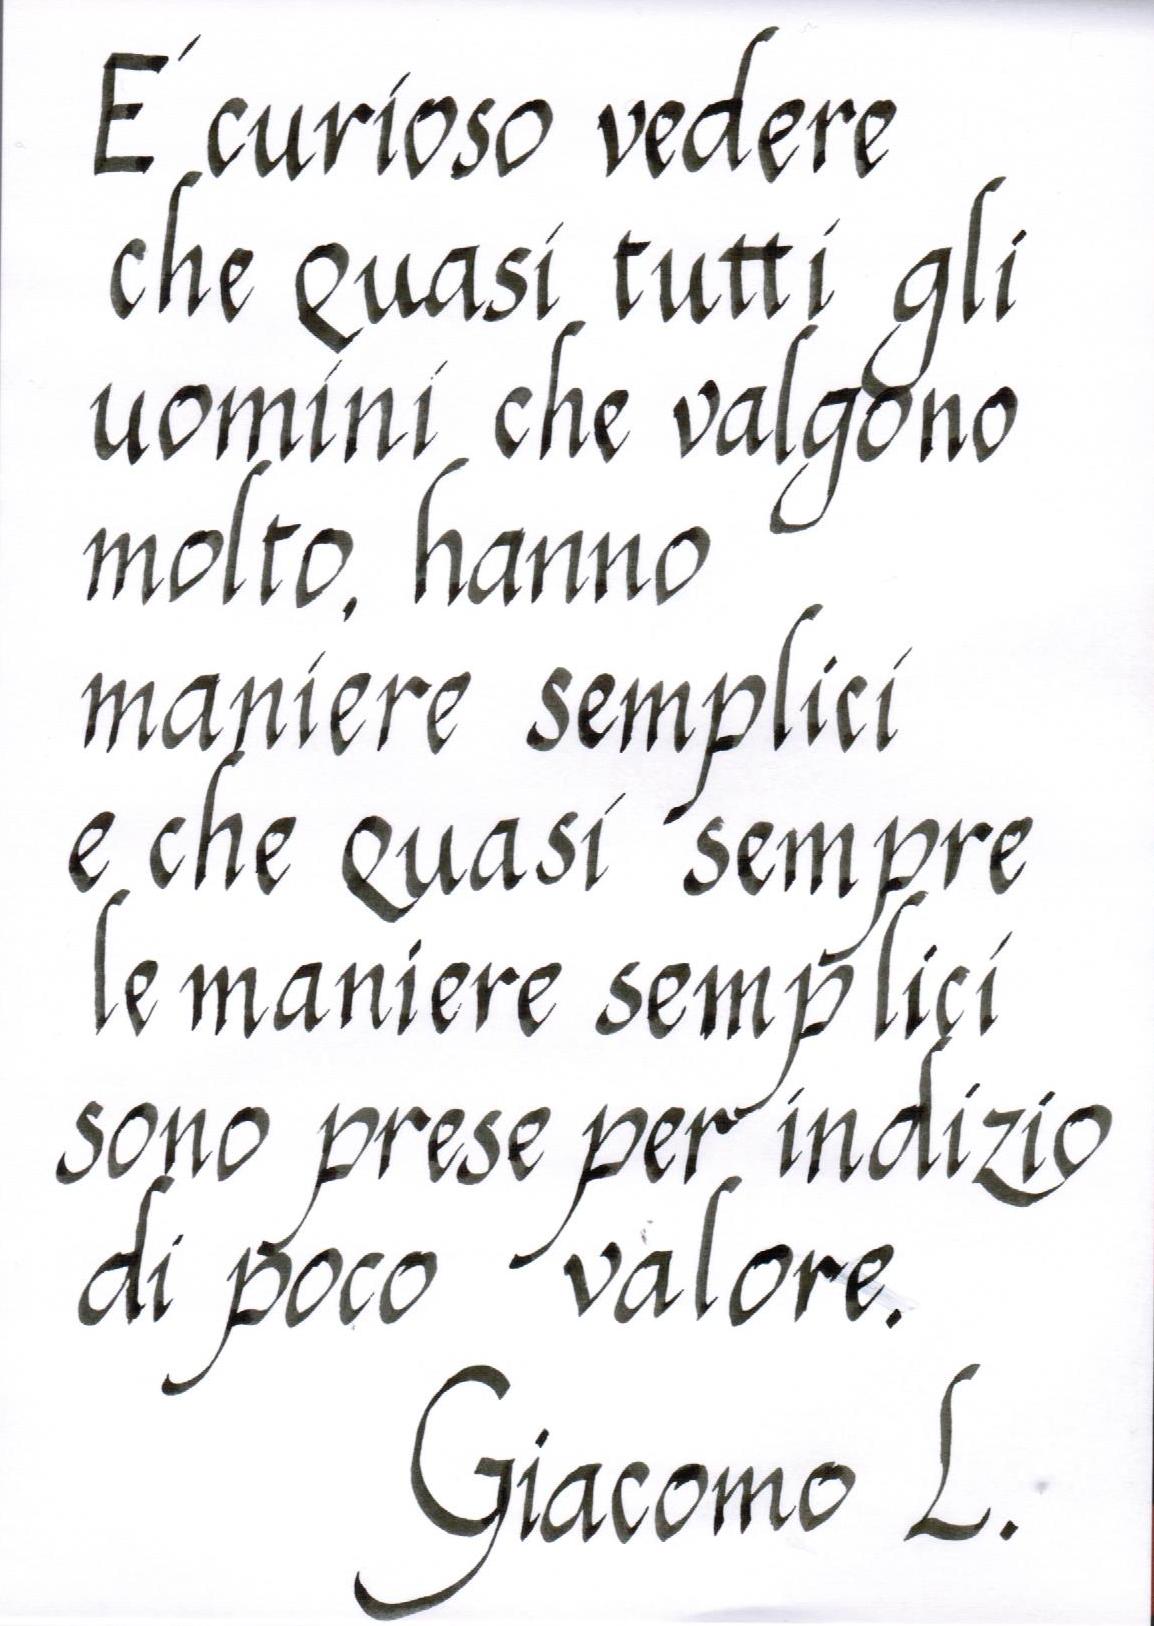 E' curioso vedere
che quasi tutti gli
uomini che valgono
molto, hanno
maniere semplici
e che quasi sempre
le maniere semplici
sono prese per indizio
di poco valore.
Giacomo L.